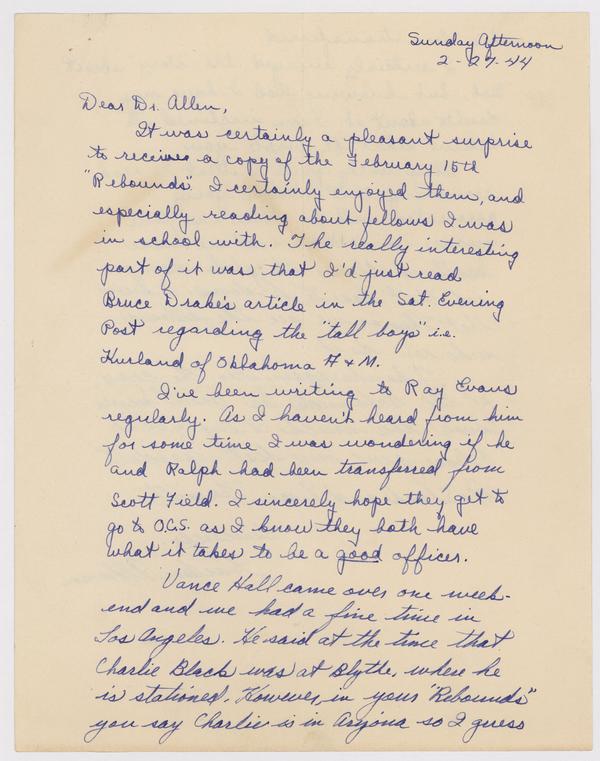 Sunday Afternoon
2-27-44
Dear Dr. Allen,
It was certainly a pleasant surprise
to receive a copy of the February 15th
"Rebounds". I certainly enjoyed them, and
especially reading about fellows I was
in school with. The really interesting
part of it was that I'd just read
Bruce Drake's article in the Sat. Evening
Post regarding the "tall boys" i.e.
Kurland of Oklahoma A & M.
I've been writing to Ray Evans
regularly. As I haven't heard from him
for some time I was wondering if he
and Ralph had been transferred from
Scott Field. I sincerely hope they get to
go to O.C.S. as I know they both have
what it takes to be a good officer.
Vance Hall came over one week-
end and we had a fine time in
Los Angeles. He said at the time that
Charlie Black was at Blythe, where he
is stationed. However, in your "Rebounds"
you say Charlie is in Aryona so I guess